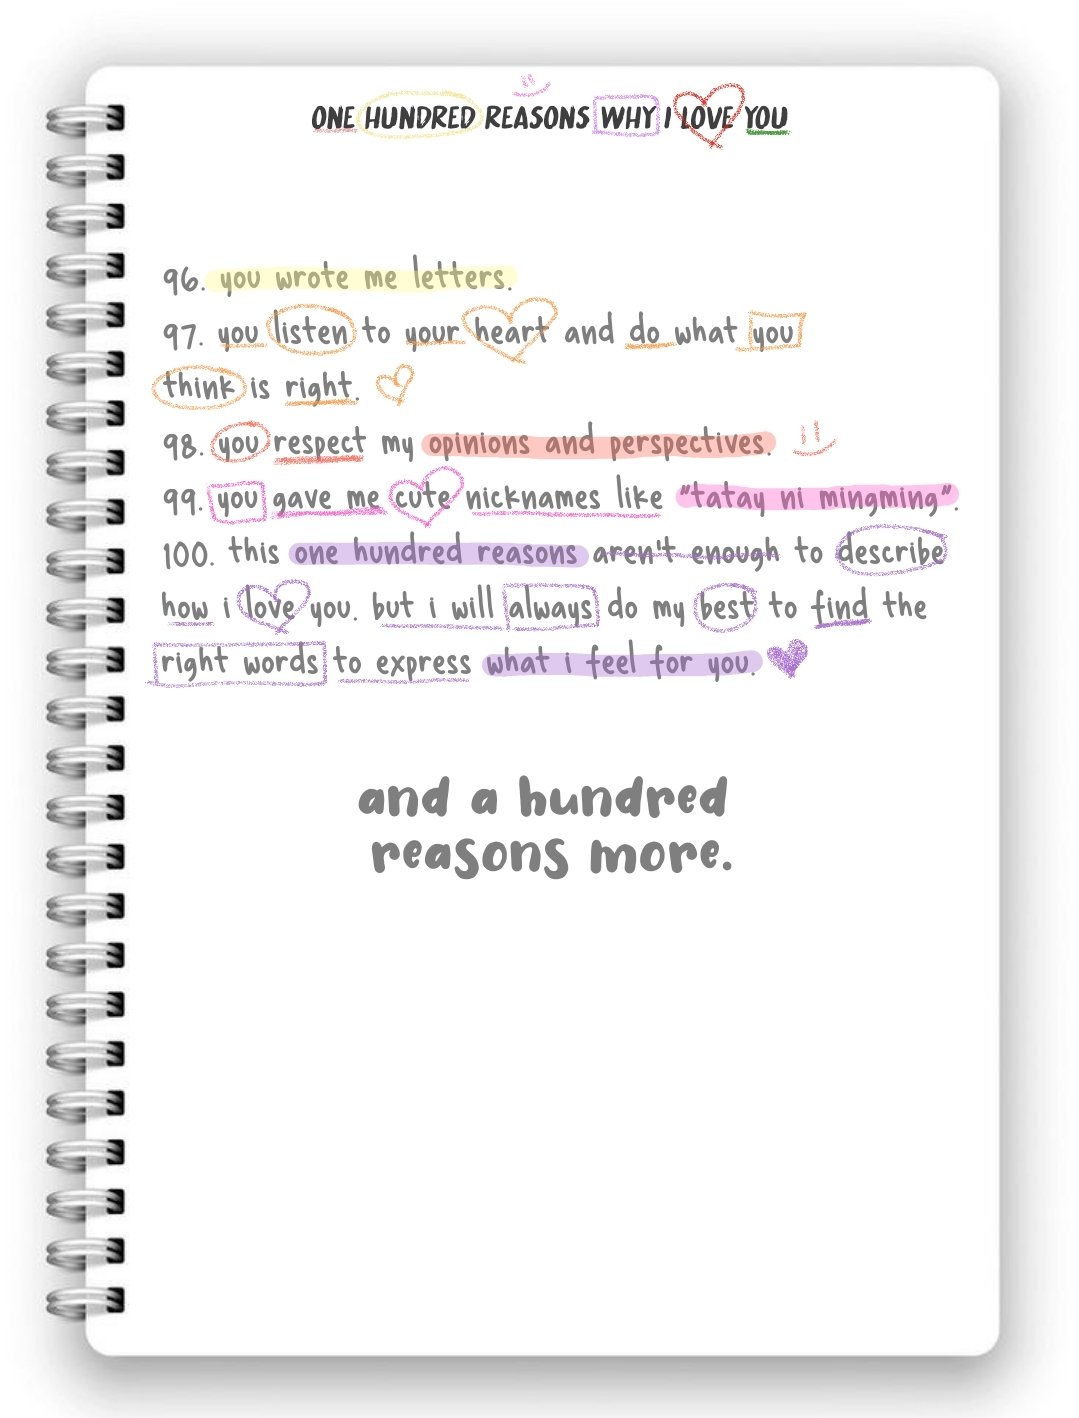 ONE HUNDRED REASONS WHY I LOVE YOU
96. you wrote me letters.
97. you listen to your heart and do what you
think is right.
98. you respect my opinions and perspectives.
99. you gave me cute nicknames like "tatay ni mingming".
100. this one hundred reasons aren't enough to describe
how i love you. but i will always do my best to find the
right words to express what i feel for you.
and a hundred
reasons more.